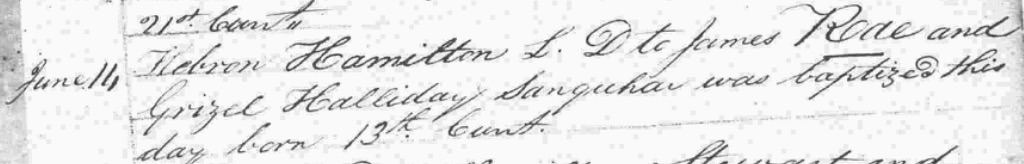 21st Curt"
Hebron Hamilton L. D to James Rae and
June 14 Grizel Halliday Sanquhar was baptized this
day born 13th Curt.
Stewart and